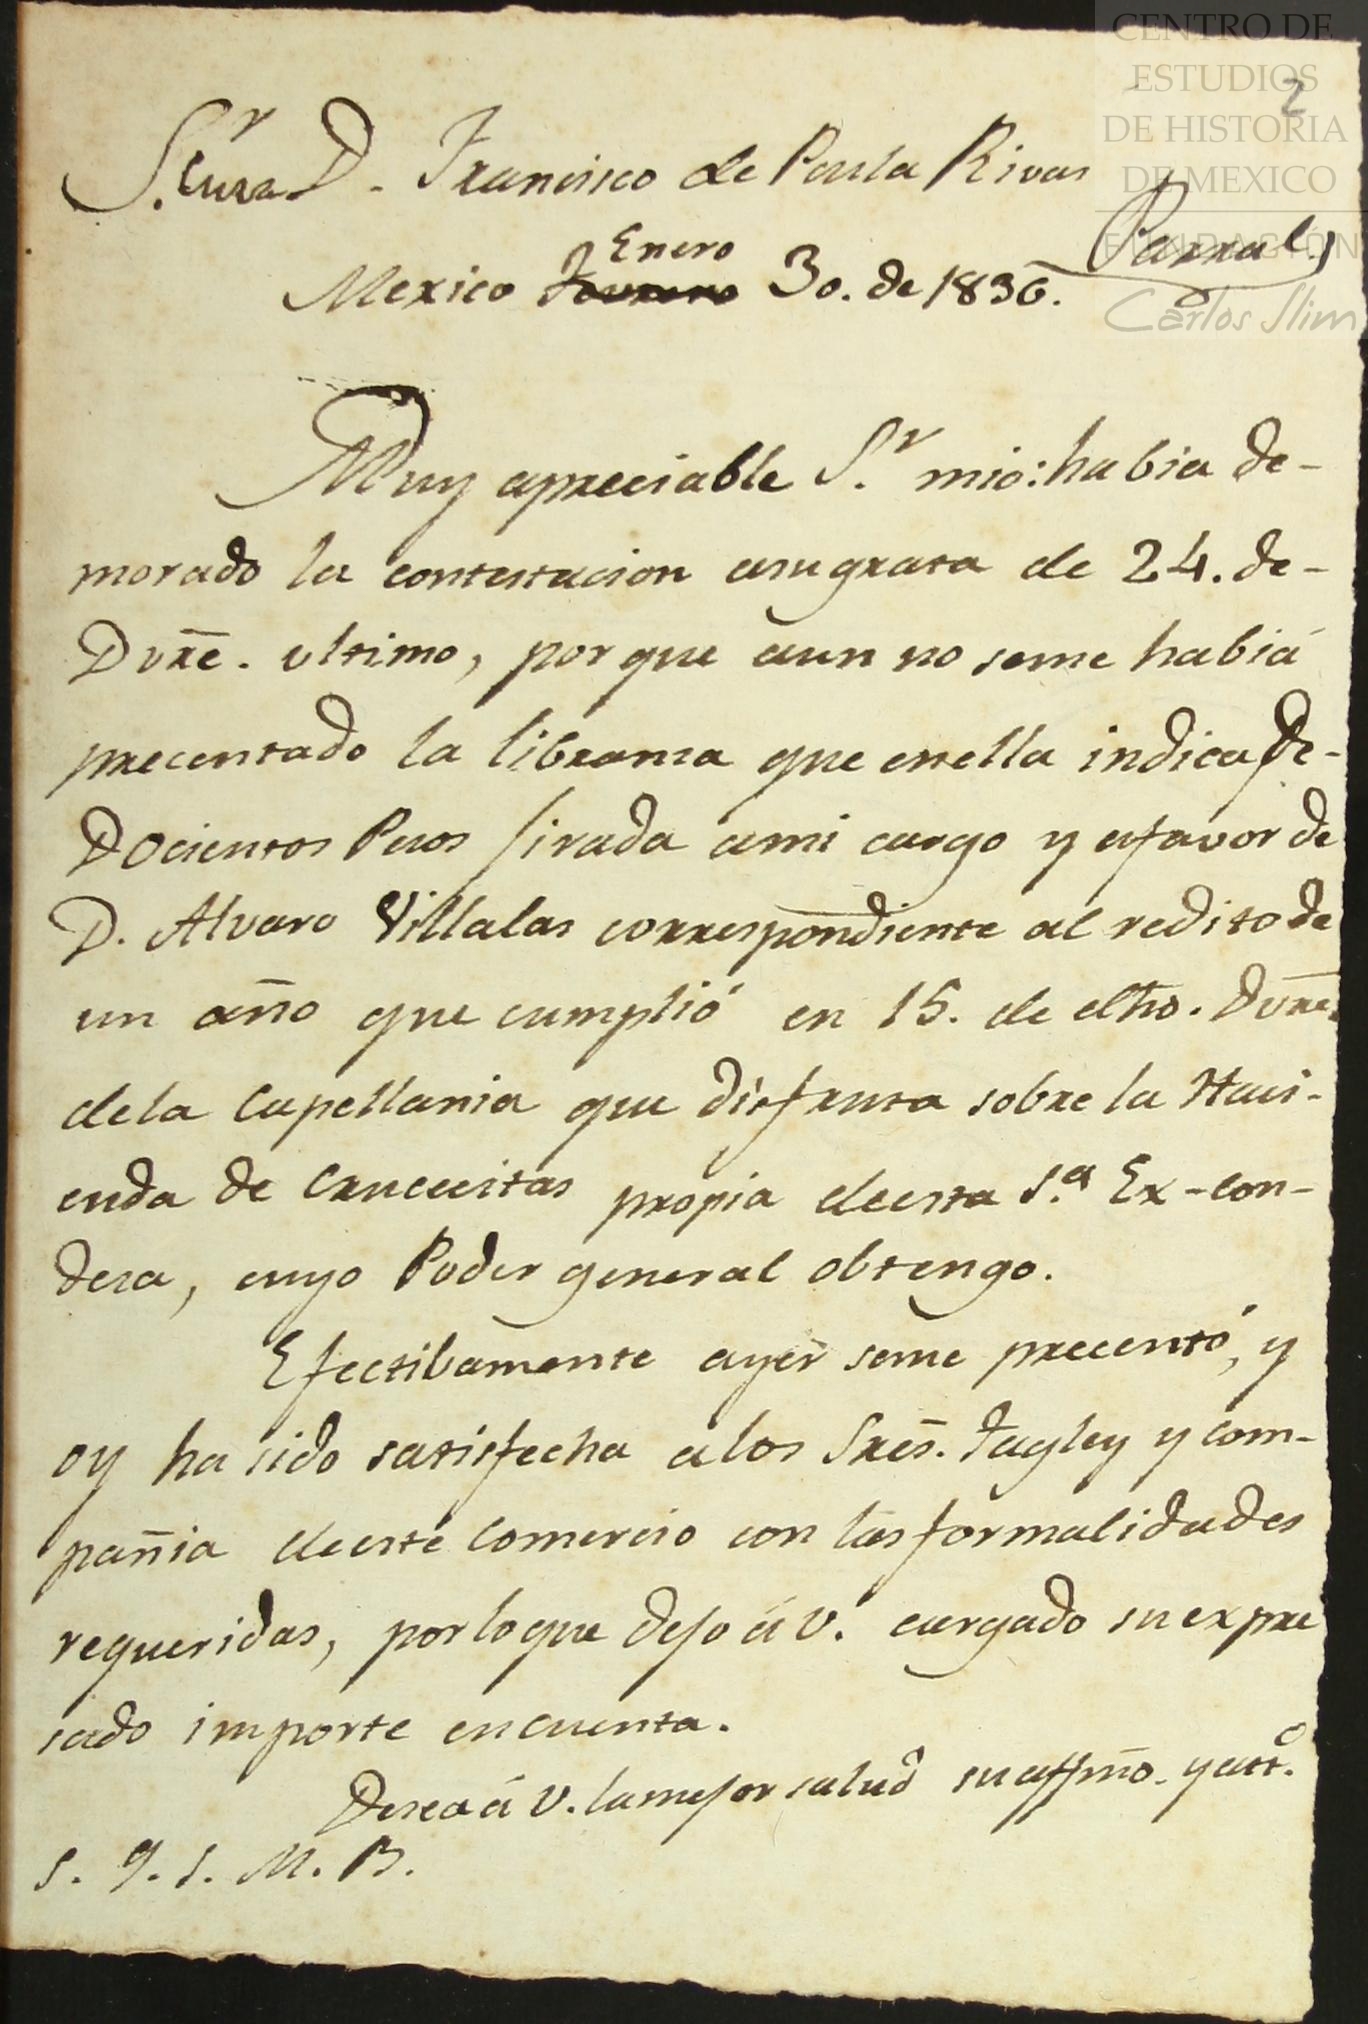 CENTRO DE
ESTUDIOS
DE HISTORIA
DE MEXICO
FUNDACIÓN
Carlos Slim
2
S.r Cura D. Francisco de Paula Rivas
Parral,
Enero
Mexico Febrero 30. de 1836.
Muy apreciable S.r mio: habia de-
morado la contestacion asugrata de 24. de-
Dvre. ultimo, por que aun no seme habiá
precentado la libranza que enella indica de-
Docientos Pesos jirada ami cargo y afavor de
D. Alvaro Villalas correspondiente al redito de
un año que cumplió en 15. de dho. Dvre.
dela Capellania que disfruta sobre la Haci-
enda de Crucecitas propia deesta S.a Ex-con-
desa, cuyo Poder general obtengo.
Efectibamente ayer seme precentó, y
oy ha sido satisfecha alos Sres. Tagley y com-
pañia deeste Comercio con las formalidades
requeridas, porloque dejo á V. cargado su expre
sado importe encuenta.
Desea á V. lamejor salud su affmo. yatto.
S. q. s. M. B.